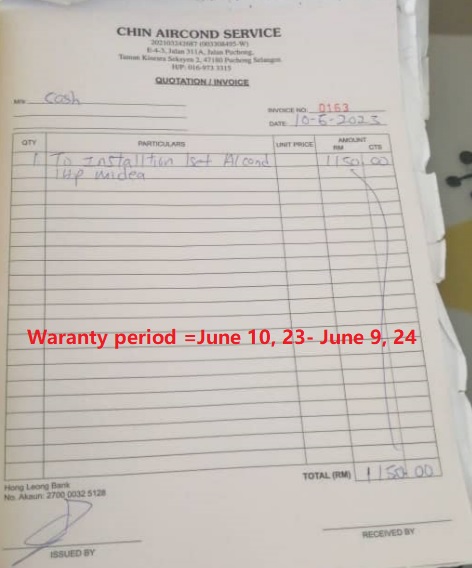 CHIN AIRCOND SERVICE
202103242687 (003368405-W)
E-4-3, Jalan 311A, Jalan Puchong,
Taman Kinrara Seksyen 3, 47180 Puchong Selangor.
H/P: 016-973 3315
QUOTATION / INVOICE
M/s Cash
INVOICE NO: 0163
DATE: 10-6-2023
QTY PARTICULARS UNIT PRICE AMOUNT
RM CTS
1 To Installtion 1set Aicond 1150 00
1Hp midea
Waranty period =June 10, 23- June 9, 24
TOTAL (RM) 1150.00
Hong Leong Bank
No. Akaun: 2700 0032 5128
ISSUED BY RECEIVED BY